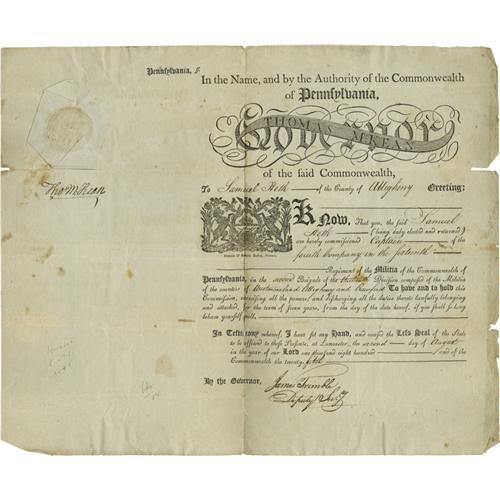 Pennsylvania, ſs.
In the Name, and by the Authority of the Commonwealth
of Pennsylvania,
Governor
THOMAS M'KEAN
of the said Commonwealth,
Tho M:Kean
To Samuel Heth of the County of Allegheny Greeting:
KNOW, That you, the said Samuel
Heth (being duly elected and returned)
are hereby commissioned Captain of the
fourth Company in the sixteenth
Regiment of the Militia of the Commonwealth of
Pennsylvania, in the second Brigade of the thirteenth Division composed of the Militia
of the counties of Westmoreland Allegheny and Crawford To have and to hold this
Commission, exercising all the powers, and discharging all the duties thereto lawfully belonging and
attached, for the term of seven years, from the day of the date hereof, if you shall so long
behave yourself well,
In Testimony whereof, I have set my Hand, and caused the Less Seal of the State
to be affixed to these Presents, at Lancaster, the second day of August
in the year of our Lord one thousand eight hundred and of the
Commonwealth the twenty fifth
By the Governor,
James Trimble
Deputy Secy